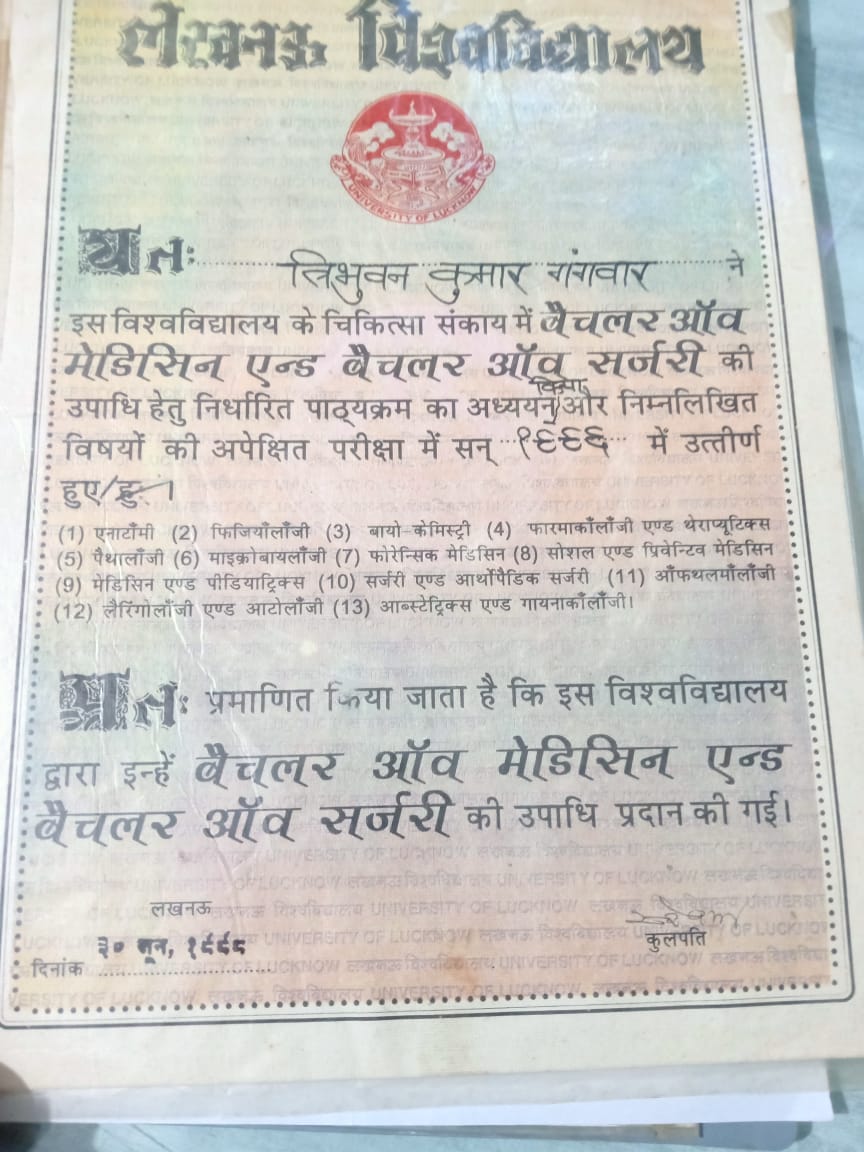 लखनऊ विश्वविद्यालय
UNIVERSITY OF LUCKNOW
यतः त्रिभुवन कुमार गंगवार ने
इस विश्वविद्यालय के चिकित्सा संकाय में बैचलर ऑव
मेडिसिन एन्ड बैचलर ऑव सर्जरी की
किया
उपाधि हेतु निर्धारित पाठ्यक्रम का अध्ययन और निम्नलिखित
विषयों की अपेक्षित परीक्षा में सन् १९९६ में उत्तीर्ण
हुए/हुई।
(1) एनाटॉमी (2) फिजियॉलॉजी (3) बायो-केमिस्ट्री (4) फारमाकॉलॉजी एण्ड थेराप्यूटिक्स
(5) पैथालॉजी (6) माइक्रोबायलॉजी (7) फोरेन्सिक मेडिसिन (8) सोशल एण्ड प्रिवेन्टिव मेडिसिन
(9) मेडिसिन एण्ड पीडियाट्रिक्स (10) सर्जरी एण्ड आर्थोपैडिक सर्जरी (11) ऑफथलमॉलॉजी
(12) लैरिंगोलॉजी एण्ड आटोलॉजी (13) आब्स्टेट्रिक्स एण्ड गायनाकॉलॉजी।
अतः प्रमाणित किया जाता है कि इस विश्वविद्यालय
द्वारा इन्हें बैचलर ऑव मेडिसिन एन्ड
बैचलर ऑव सर्जरी की उपाधि प्रदान की गई।
लखनऊ
दिनांक ३० जून, १९९८
कुलपति